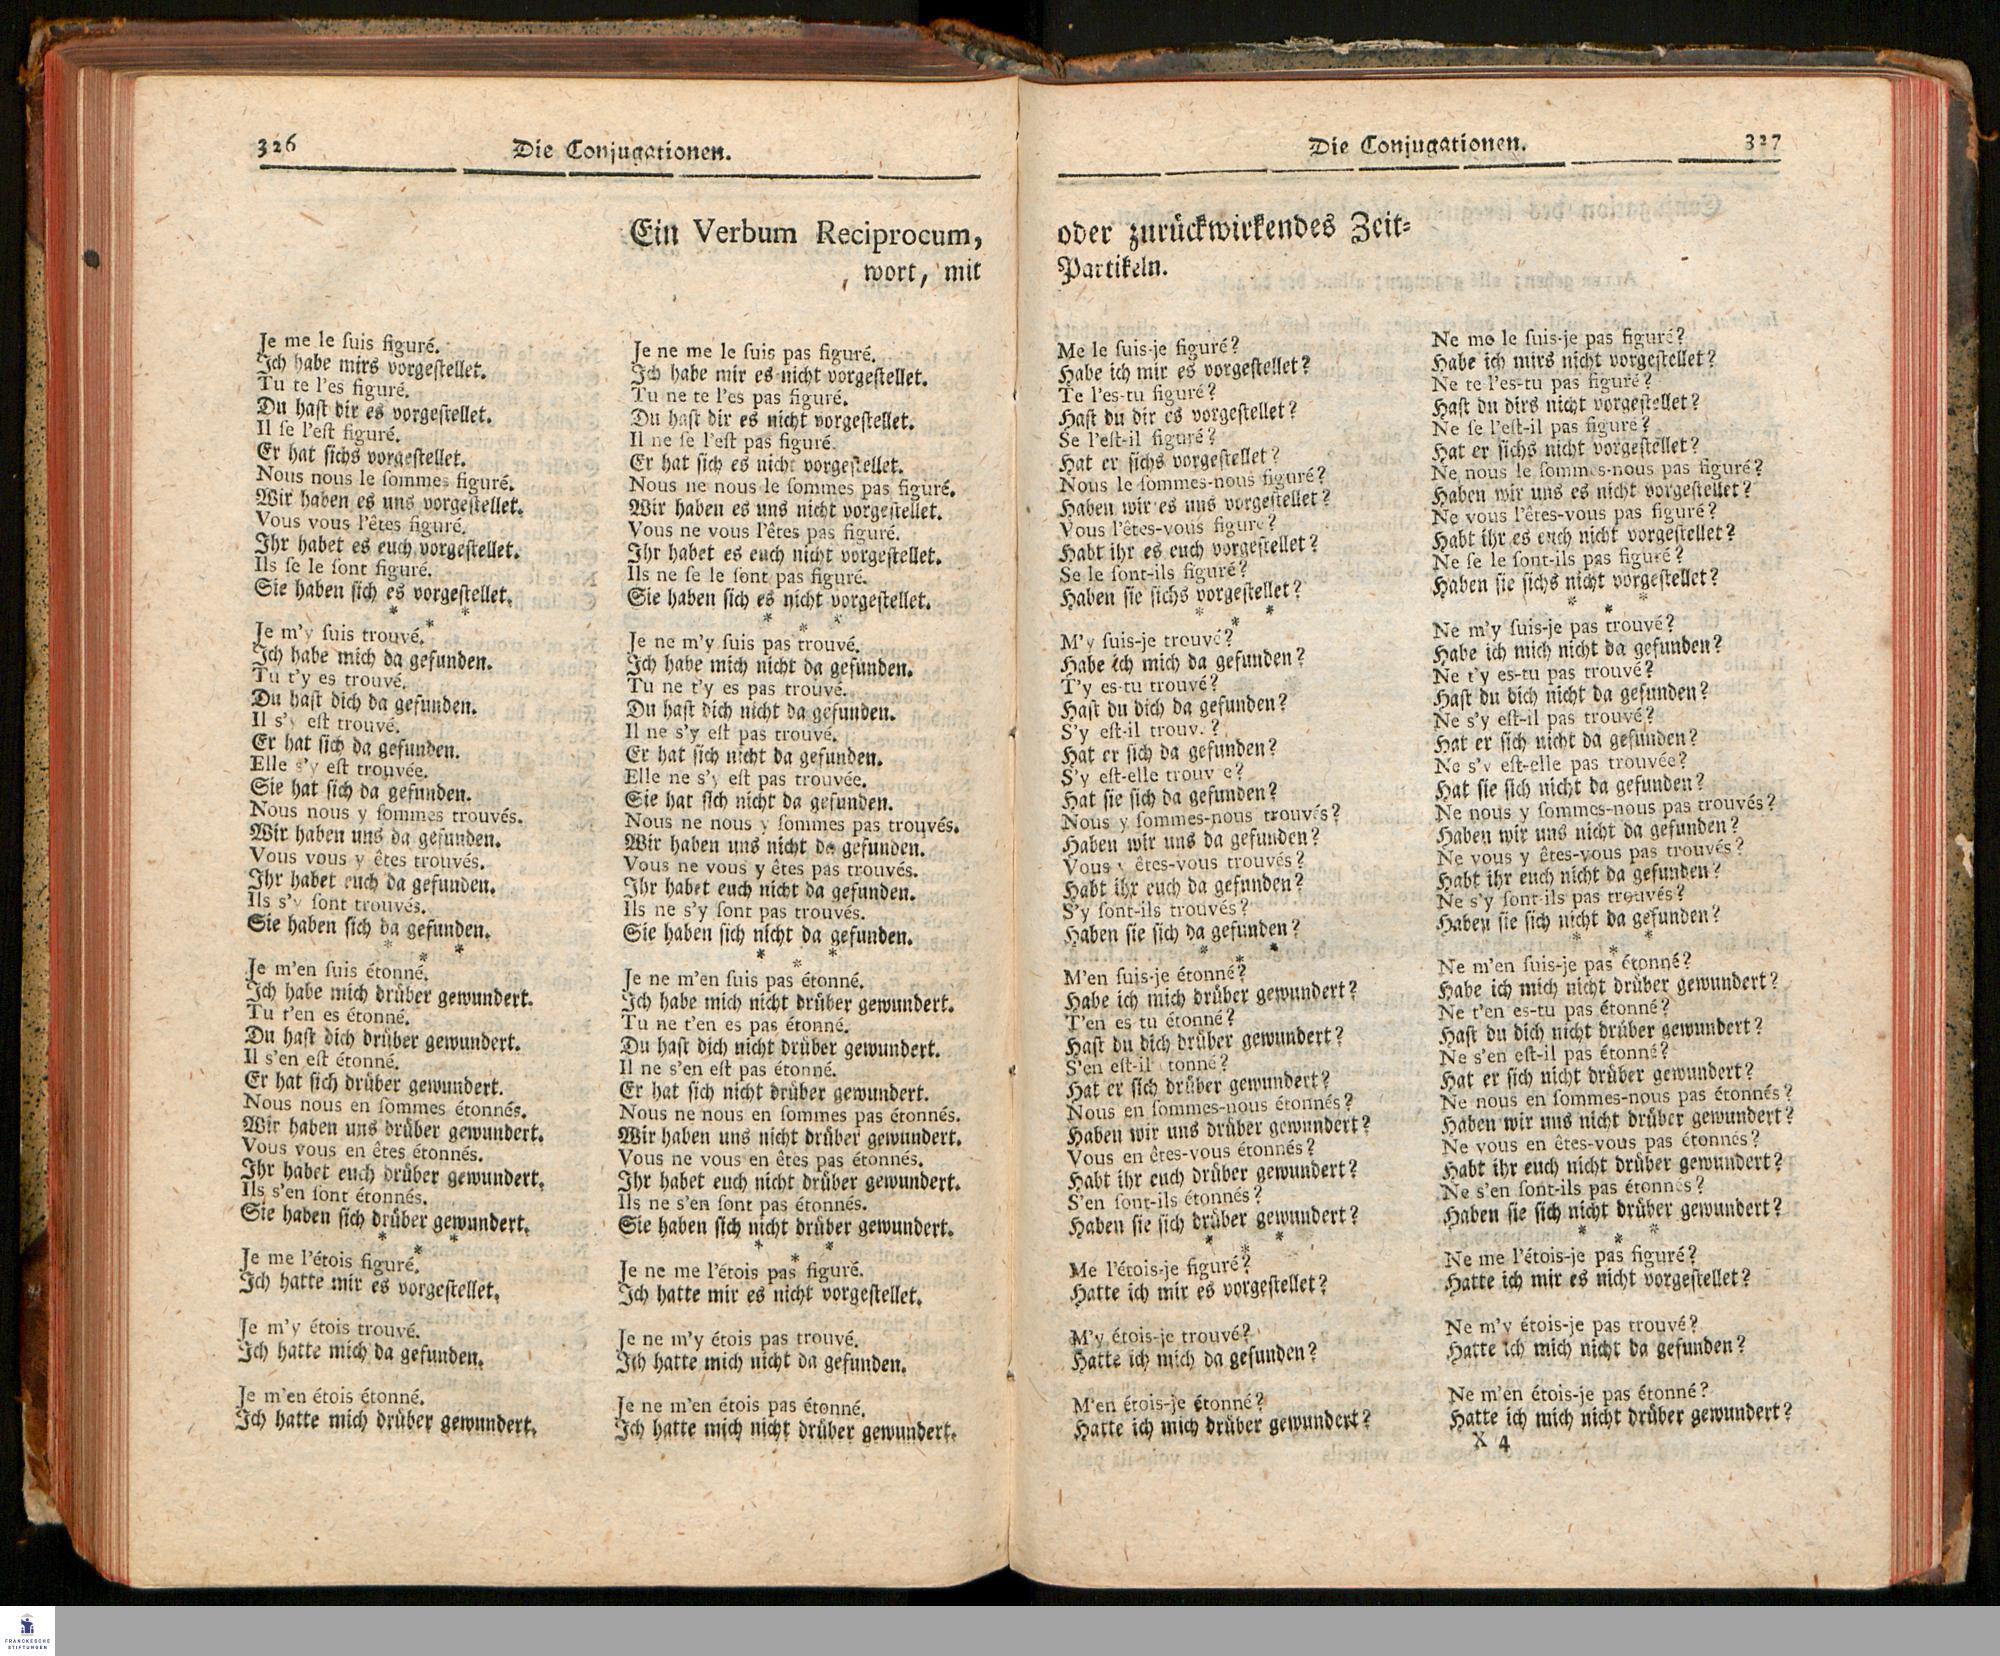 326
Die Conjugationen.
Ein Verbum Reciprocum,
wort, mit
Je me le ſuis figuré.
Ich habe mirs vorgeſtellet.
Tu te l'es figuré.
Du haſt dir es vorgeſtellet.
Il ſe l'eſt figuré.
Er hat ſichs vorgeſtellet.
Nous nous le ſommes figuré.
Wir haben es uns vorgeſtellet.
Vous vous l'êtes figuré.
Ihr habet es euch vorgeſtellet.
Ils ſe le ſont figuré.
Sie haben ſich es vorgeſtellet.
* * *
Je m'y ſuis trouvé.
Ich habe mich da gefunden.
Tu t'y es trouvé.
Du haſt dich da gefunden.
Il s'y eſt trouvé.
Er hat ſich da gefunden.
Elle s'y eſt trouvée.
Sie hat ſich da gefunden.
Nous nous y ſommes trouvés.
Wir haben uns da gefunden.
Vous vous y êtes trouvés.
Ihr habet euch da gefunden.
Ils s'y ſont trouvés.
Sie haben ſich da gefunden.
* * *
Je m'en ſuis étonné.
Ich habe mich drüber gewundert.
Tu t'en es étonné.
Du haſt dich drüber gewundert.
Il s'en eſt étonné.
Er hat ſich drüber gewundert.
Nous nous en ſommes étonnés.
Wir haben uns drüber gewundert.
Vous vous en êtes étonnés.
Ihr habet euch drüber gewundert.
Ils s'en ſont étonnés.
Sie haben ſich drüber gewundert.
* * *
Je me l'étois figuré.
Ich hatte mir es vorgeſtellet.
Je m'y étois trouvé.
Ich hatte mich da gefunden.
Je m'en étois étonné.
Ich hatte mich drüber gewundert.
Je ne me le ſuis pas figuré.
Ich habe mir es nicht vorgeſtellet.
Tu ne te l'es pas figuré.
Du haſt dir es nicht vorgeſtellet.
Il ne ſe l'eſt pas figuré.
Er hat ſich es nicht vorgeſtellet.
Nous ne nous le ſommes pas figuré.
Wir haben es uns nicht vorgeſtellet.
Vous ne vous l'êtes pas figuré.
Ihr habet es euch nicht vorgeſtellet.
Ils ne ſe le ſont pas figuré.
Sie haben ſich es nicht vorgeſtellet.
* * *
Je ne m'y ſuis pas trouvé.
Ich habe mich nicht da gefunden.
Tu ne t'y es pas trouvé.
Du haſt dich nicht da gefunden.
Il ne s'y eſt pas trouvé.
Er hat ſich nicht da gefunden.
Elle ne s'y eſt pas trouvée.
Sie hat ſich nicht da gefunden.
Nous ne nous y ſommes pas trouvés.
Wir haben uns nicht da gefunden.
Vous ne vous y êtes pas trouvés.
Ihr habet euch nicht da gefunden.
Ils ne s'y ſont pas trouvés.
Sie haben ſich nicht da gefunden.
* * *
Je ne m'en ſuis pas étonné.
Ich habe mich nicht drüber gewundert.
Tu ne t'en es pas étonné.
Du haſt dich nicht drüber gewundert.
Il ne s'en eſt pas étonné.
Er hat ſich nicht drüber gewundert.
Nous ne nous en ſommes pas étonnés.
Wir haben uns nicht drüber gewundert.
Vous ne vous en êtes pas étonnés.
Ihr habet euch nicht drüber gewundert.
Ils ne s'en ſont pas étonnés.
Sie haben ſich nicht drüber gewundert.
* * *
Je ne me l'étois pas figuré.
Ich hatte mir es nicht vorgeſtellet.
Je ne m'y étois pas trouvé.
Ich hatte mich nicht da gefunden.
Je ne m'en étois pas étonné.
Ich hatte mich nicht drüber gewundert.
Die Conjugationen.
327
oder zurückwirkendes Zeit=
Partikeln.
Me le ſuis-je figuré?
Habe ich mir es vorgeſtellet?
Te l'es-tu figuré?
Haſt du dir es vorgeſtellet?
Se l'eſt-il figuré?
Hat er ſichs vorgeſtellet?
Nous le ſommes-nous figuré?
Haben wir es uns vorgeſtellet?
Vous l'êtes-vous figuré?
Habt ihr es euch vorgeſtellet?
Se le ſont-ils figuré?
Haben ſie ſichs vorgeſtellet?
* * *
M'y ſuis-je trouvé?
Habe ich mich da gefunden?
T'y es-tu trouvé?
Haſt du dich da gefunden?
S'y eſt-il trouv. ?
Hat er ſich da gefunden?
S'y eſt-elle trouv e?
Hat ſie ſich da gefunden?
Nous y ſommes-nous trouvés?
Haben wir uns da gefunden?
Vous y êtes-vous trouvés?
Habt ihr euch da gefunden?
S'y ſont-ils trouvés?
Haben ſie ſich da gefunden?
* * *
M'en ſuis-je étonné?
Habe ich mich drüber gewundert?
T'en es tu étonné?
Haſt du dich drüber gewundert?
S'en eſt-il étonné?
Hat er ſich drüber gewundert?
Nous en ſommes-nous étonnés?
Haben wir uns drüber gewundert?
Vous en êtes-vous étonnés?
Habt ihr euch drüber gewundert?
S'en ſont-ils étonnés?
Haben ſie ſich drüber gewundert?
* * *
Me l'étois-je figuré?
Hatte ich mir es vorgeſtellet?
M'y étois-je trouvé?
Hatte ich mich da gefunden?
M'en étois-je étonné?
Hatte ich mich drüber gewundert?
Ne me le ſuis-je pas figuré?
Habe ich mirs nicht vorgeſtellet?
Ne te l'es-tu pas figuré?
Haſt du dirs nicht vorgeſtellet?
Ne ſe l'eſt-il pas figuré?
Hat er ſichs nicht vorgeſtellet?
Ne nous le ſommes-nous pas figuré?
Haben wir uns es nicht vorgeſtellet?
Ne vous l'êtes-vous pas figuré?
Habt ihr es euch nicht vorgeſtellet?
Ne ſe le ſont-ils pas figuré?
Haben ſie ſichs nicht vorgeſtellet?
* * *
Ne m'y ſuis-je pas trouvé?
Habe ich mich nicht da gefunden?
Ne t'y es-tu pas trouvé?
Haſt du dich nicht da gefunden?
Ne s'y eſt-il pas trouvé?
Hat er ſich nicht da gefunden?
Ne s'y eſt-elle pas trouvée?
Hat ſie ſich nicht da gefunden?
Ne nous y ſommes-nous pas trouvés?
Haben wir uns nicht da gefunden?
Ne vous y êtes-vous pas trouvés?
Habt ihr euch nicht da gefunden?
Ne s'y ſont-ils pas trouvés?
Haben ſie ſich nicht da gefunden?
* * *
Ne m'en ſuis-je pas étonné?
Habe ich mich nicht drüber gewundert?
Ne t'en es-tu pas étonné?
Haſt du dich nicht drüber gewundert?
Ne s'en eſt-il pas étonné?
Hat er ſich nicht drüber gewundert?
Ne nous en ſommes-nous pas étonnés?
Haben wir uns nicht drüber gewundert?
Ne vous en êtes-vous pas étonnés?
Habt ihr euch nicht drüber gewundert?
Ne s'en ſont-ils pas étonnés?
Haben ſie ſich nicht drüber gewundert?
* * *
Ne me l'étois-je pas figuré?
Hatte ich mir es nicht vorgeſtellet?
Ne m'y étois-je pas trouvé?
Hatte ich mich nicht da gefunden?
Ne m'en étois-je pas étonné?
Hatte ich mich nicht drüber gewundert?
X 4
FRANCKESCHE
STIFTUNGEN